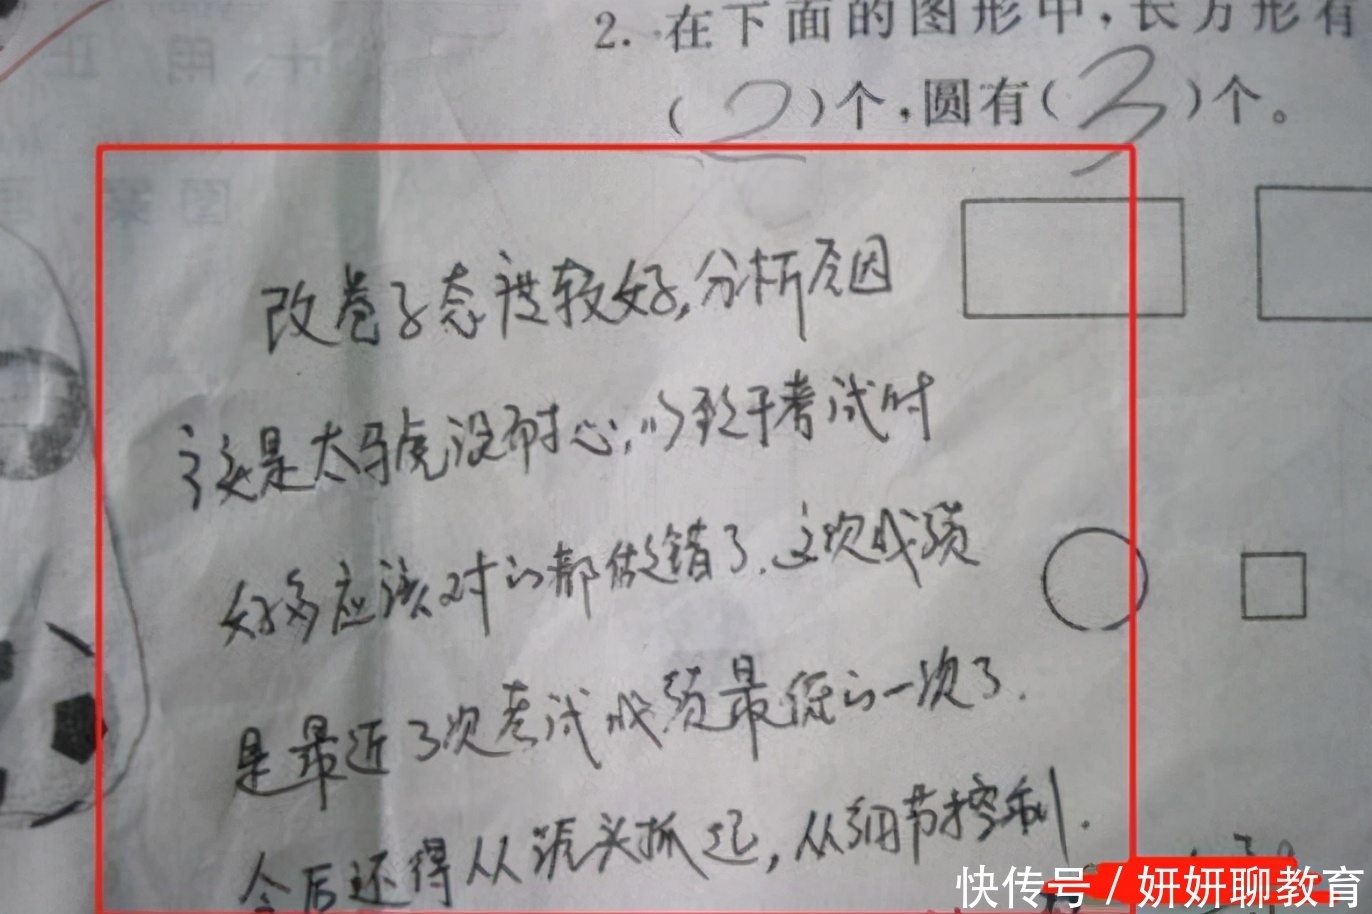 2. 在下面的图形中,长方形有
(2)个,圆有(3)个。
改卷子态度较好,分析原因
应该是太马虎没耐心,以致于考试时
好多应该对的都做错了.这次成绩
是最近3次考试成绩最低的一次了.
今后还得从源头抓起,从细节控制.
快传号 / 妍妍聊教育